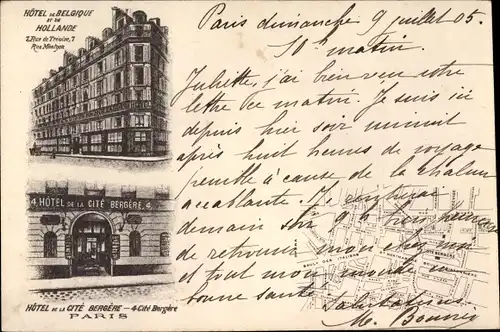 HÔTEL DE BELGIQUE
ET DE
HOLLANDE
7, Rue de Trévise, 7
Rue Montyon
4. HÔTEL DE LA CITÉ BERGÈRE. 4.
HÔTEL DE LA CITÉ BERGÈRE — 4 Cité Bergère
PARIS
Paris dimanche 9 juillet 05.
10h matin.
Juliette, j'ai bien reçu votre
lettre ce matin. Je suis ici
depuis hier soir minuit
après huit heures de voyage
pénible à cause de la chaleur
accablante. Je
demain soir heures
de retrouver mon chez moi
et tout mon monde en
bonne santé.
Salutations
CITÉ BERGÈRE